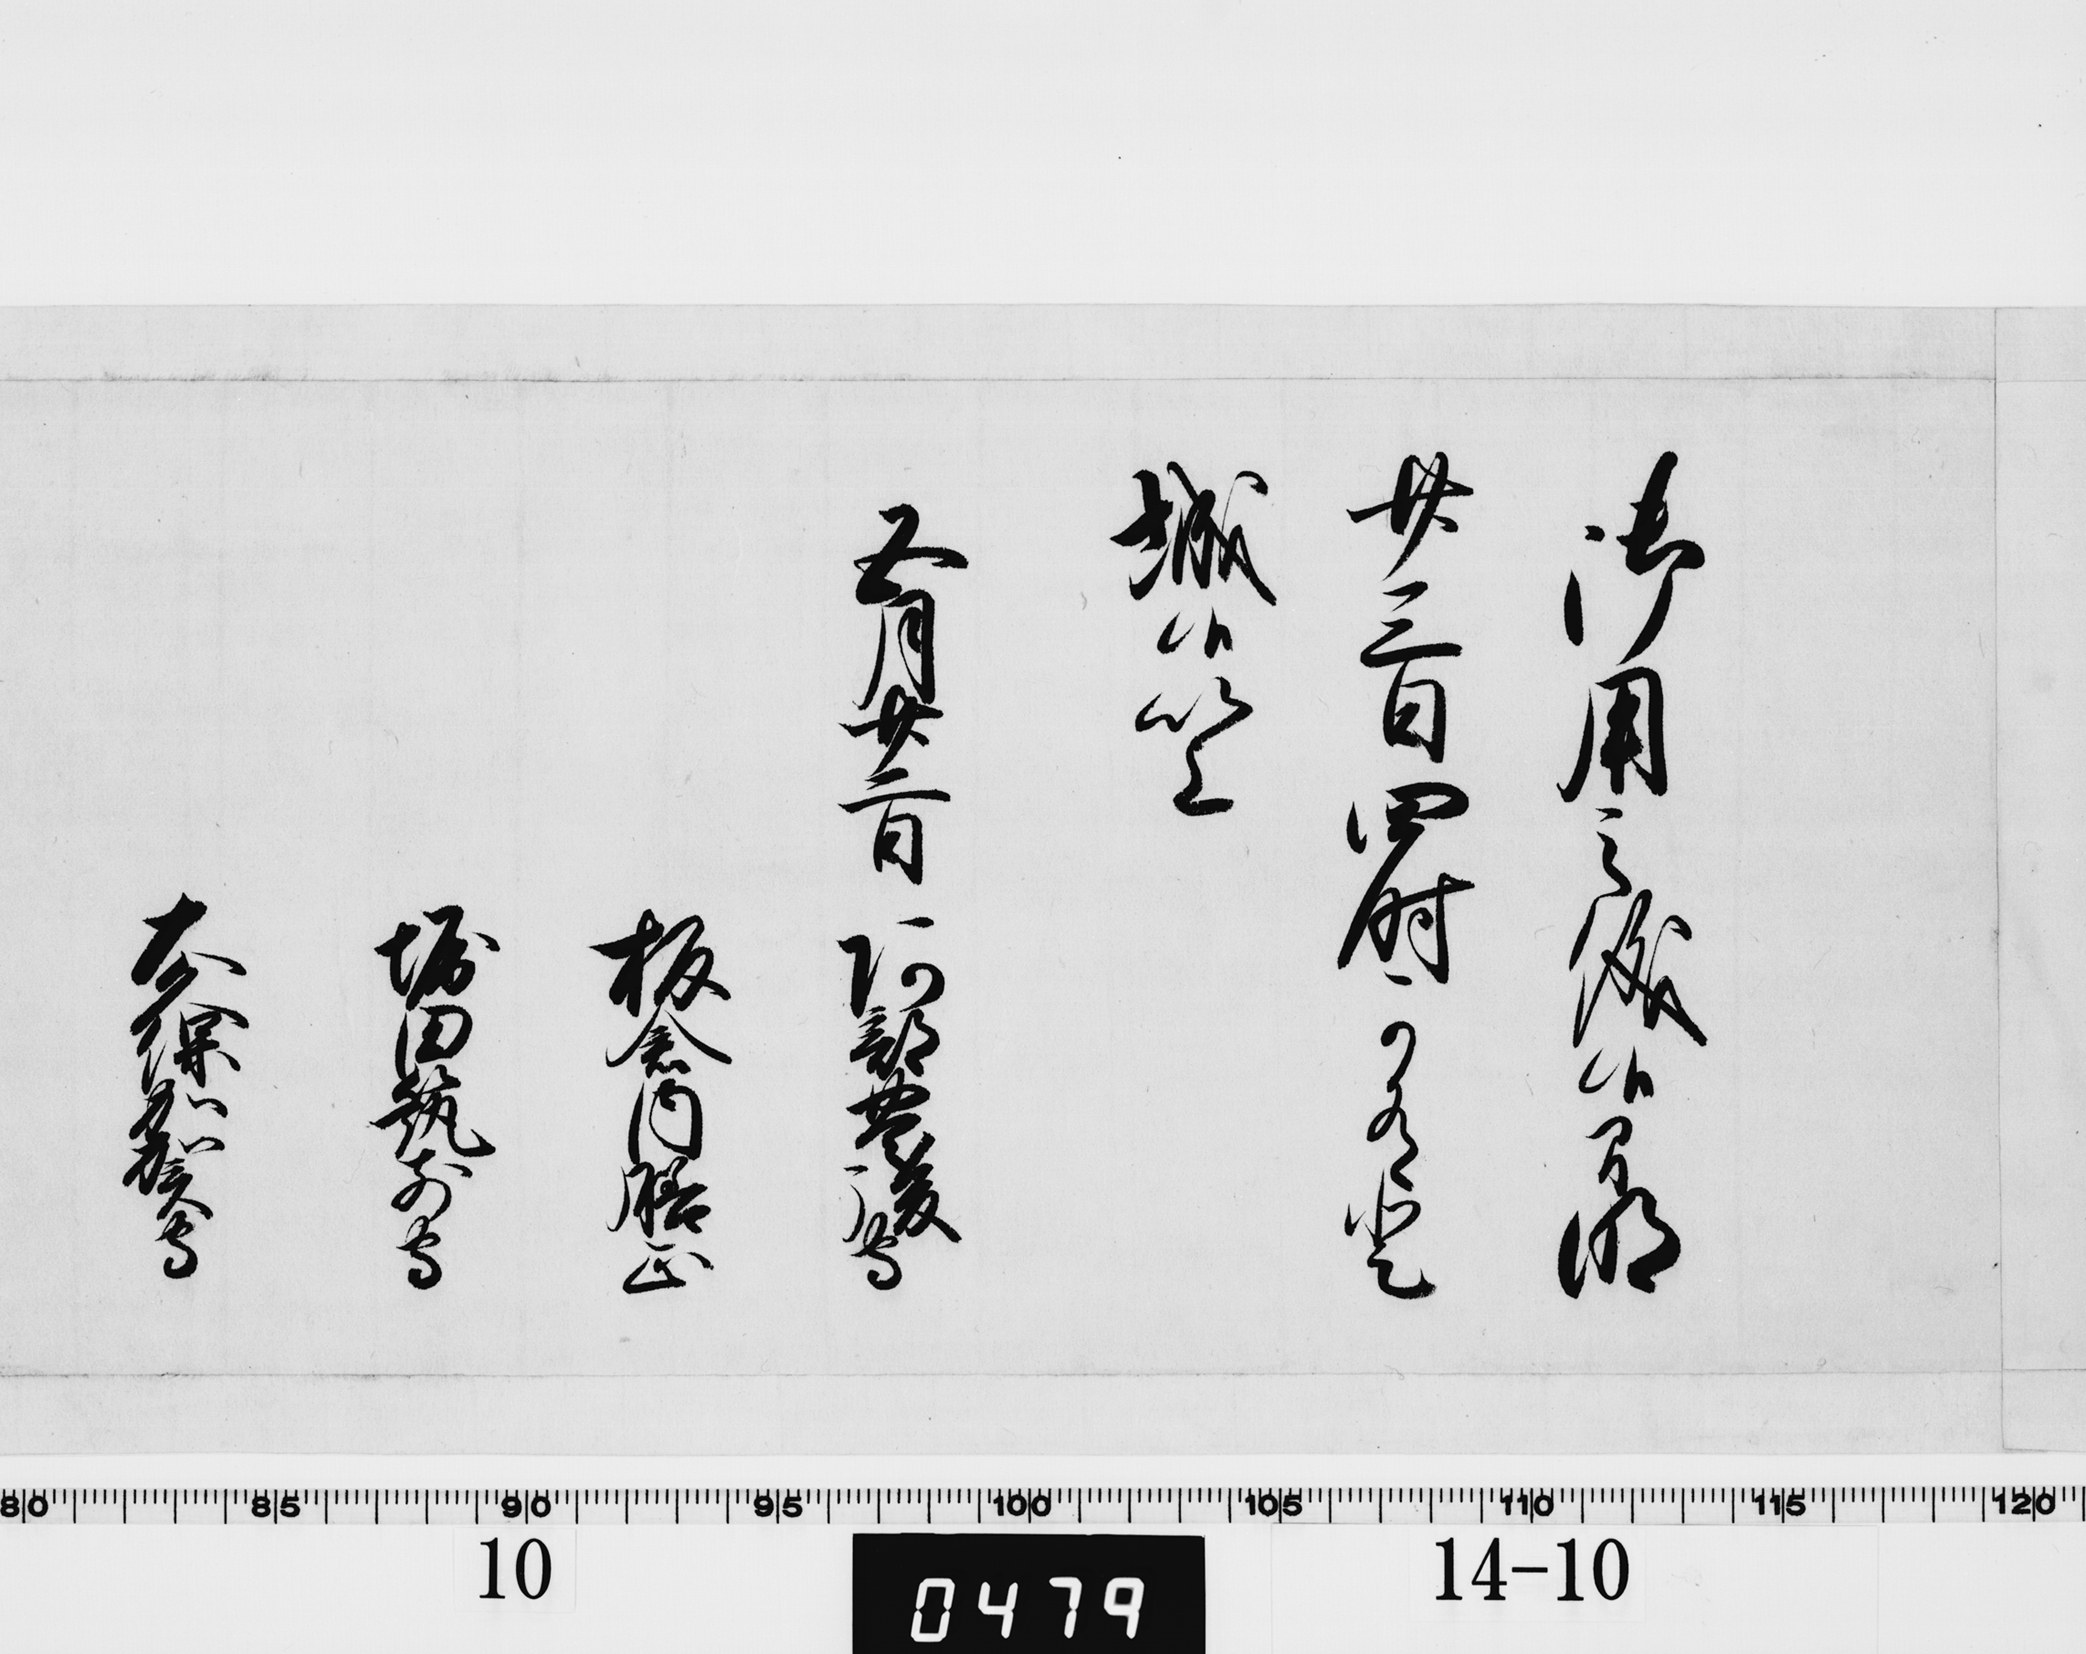 御用之儀候間明
廿三日四時可有登
城候以上
五月廿二日 阿部豊後守
板倉内膳正
堀田筑前守
大久保加賀守
80 85 90 95 100 105 110 115 120
10
0479
14-10